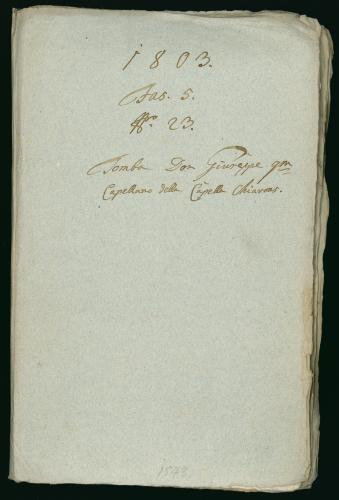 1803.
Fas. 5.
Nro. 23.
Tomba Don Giuseppe qm
Capellano della Capella Chiavons.
1543